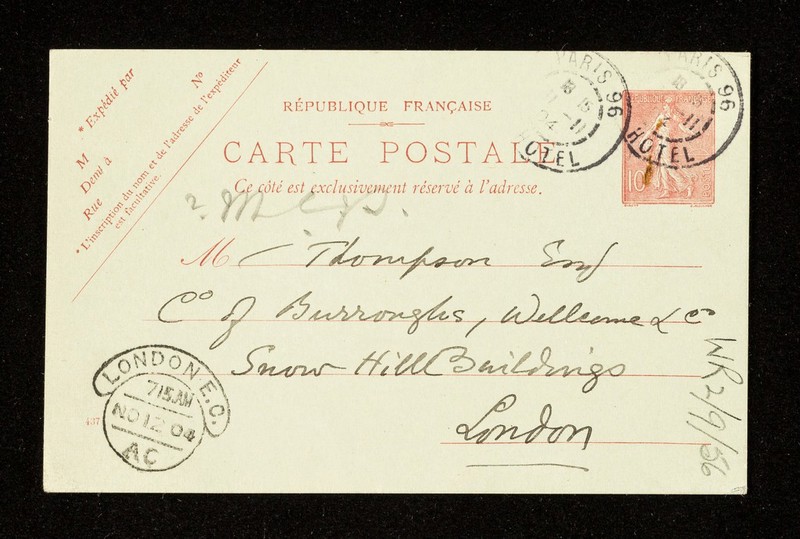 * Expédié par
N°
M
Demt à
Rue
* L'inscription du nom et de l'adresse de l'expéditeur
est facultative.
RÉPUBLIQUE FRANÇAISE
CARTE POSTALE
Ce côté est exclusivement réservé à l'adresse.
PARIS 96
15
11 -11
04
HOTEL
PARIS 96
-11
HOTEL
10
M Thompson
Co of Burroughs, Wellcome & Co
Snow Hill Buildings
London
LONDON E.C.
715 AM
NO 12 04
AC
437
WR 2/9/56